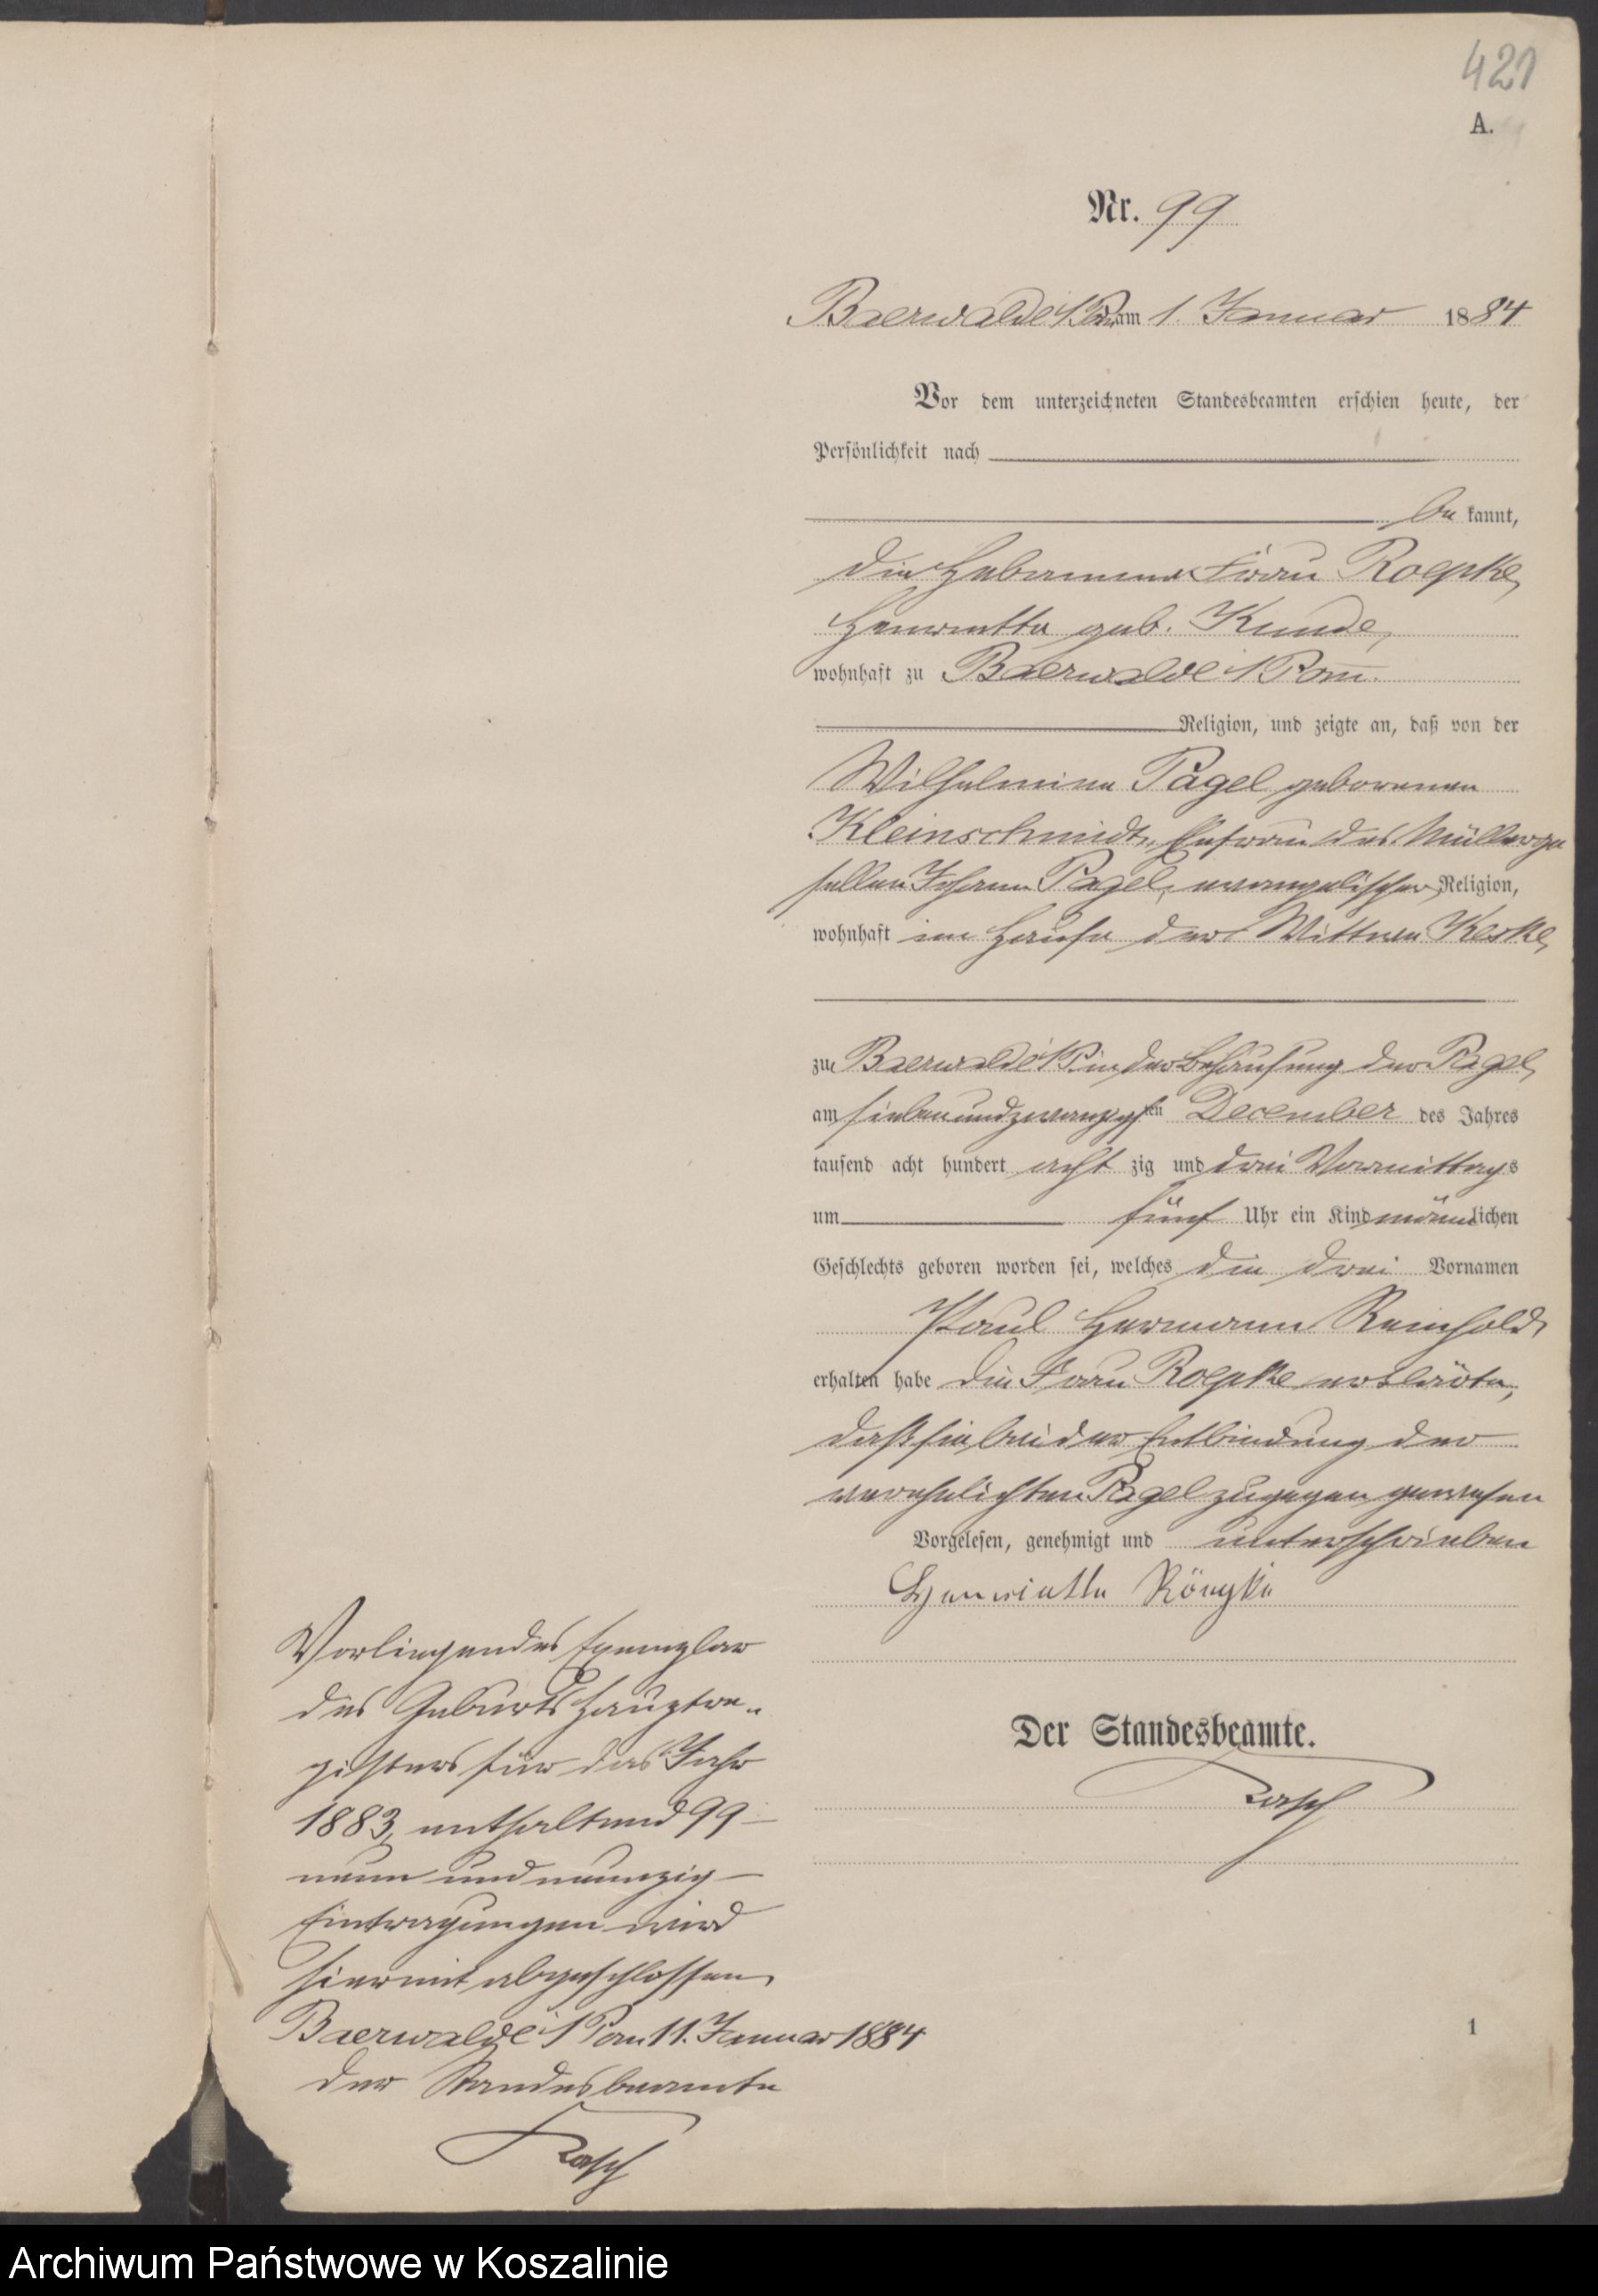 421
A.
Nr. 99
Baerwalde i/Pom am 1 Januar 1884
Vor dem unterzeichneten Standesbeamten erschien heute, der
Persönlichkeit nach
be kannt,
die Hebamme Frau Roepke,
Henriette geb. Kunde,
wohnhaft zu Baerwalde i/Pom.
Religion, und zeigte an, daß von der
Wilhelmine Pagel geborenen
Kleinschmidt, Ehefrau des Müllerge
sellen Johann Pagel, evangelischer Religion,
wohnhaft im Hause der Wittwe Keske,
zu Baerwalde i/P in der Behausung der Pagel,
am siebenundzwanzigsten December des Jahres
tausend acht hundert acht zig und drei Vormittags
um fünf Uhr ein Kind männlichen
Geschlechts geboren worden sei, welches die drei Vornamen
Paul Hermann Reinhold
erhalten habe die Frau Roepke erklärte,
daß sie bei der Entbindung der
verehelichten Pagel zugegen gewesen
Vorgelesen, genehmigt und unterschrieben
Henriette Röepke
Der Standesbeamte.
Rasch
Vorliegendes Exemplar
des Geburts Hauptre„
gisters für das Jahr
1883, enthaltend 99 –
neun und neunzig –
Eintragungen wird
hiermit abgeschlossen
Baerwalde i/Pom 11. Januar 1884
der Standesbeamte
Rasch
1
Archiwum Państwowe w Koszalinie